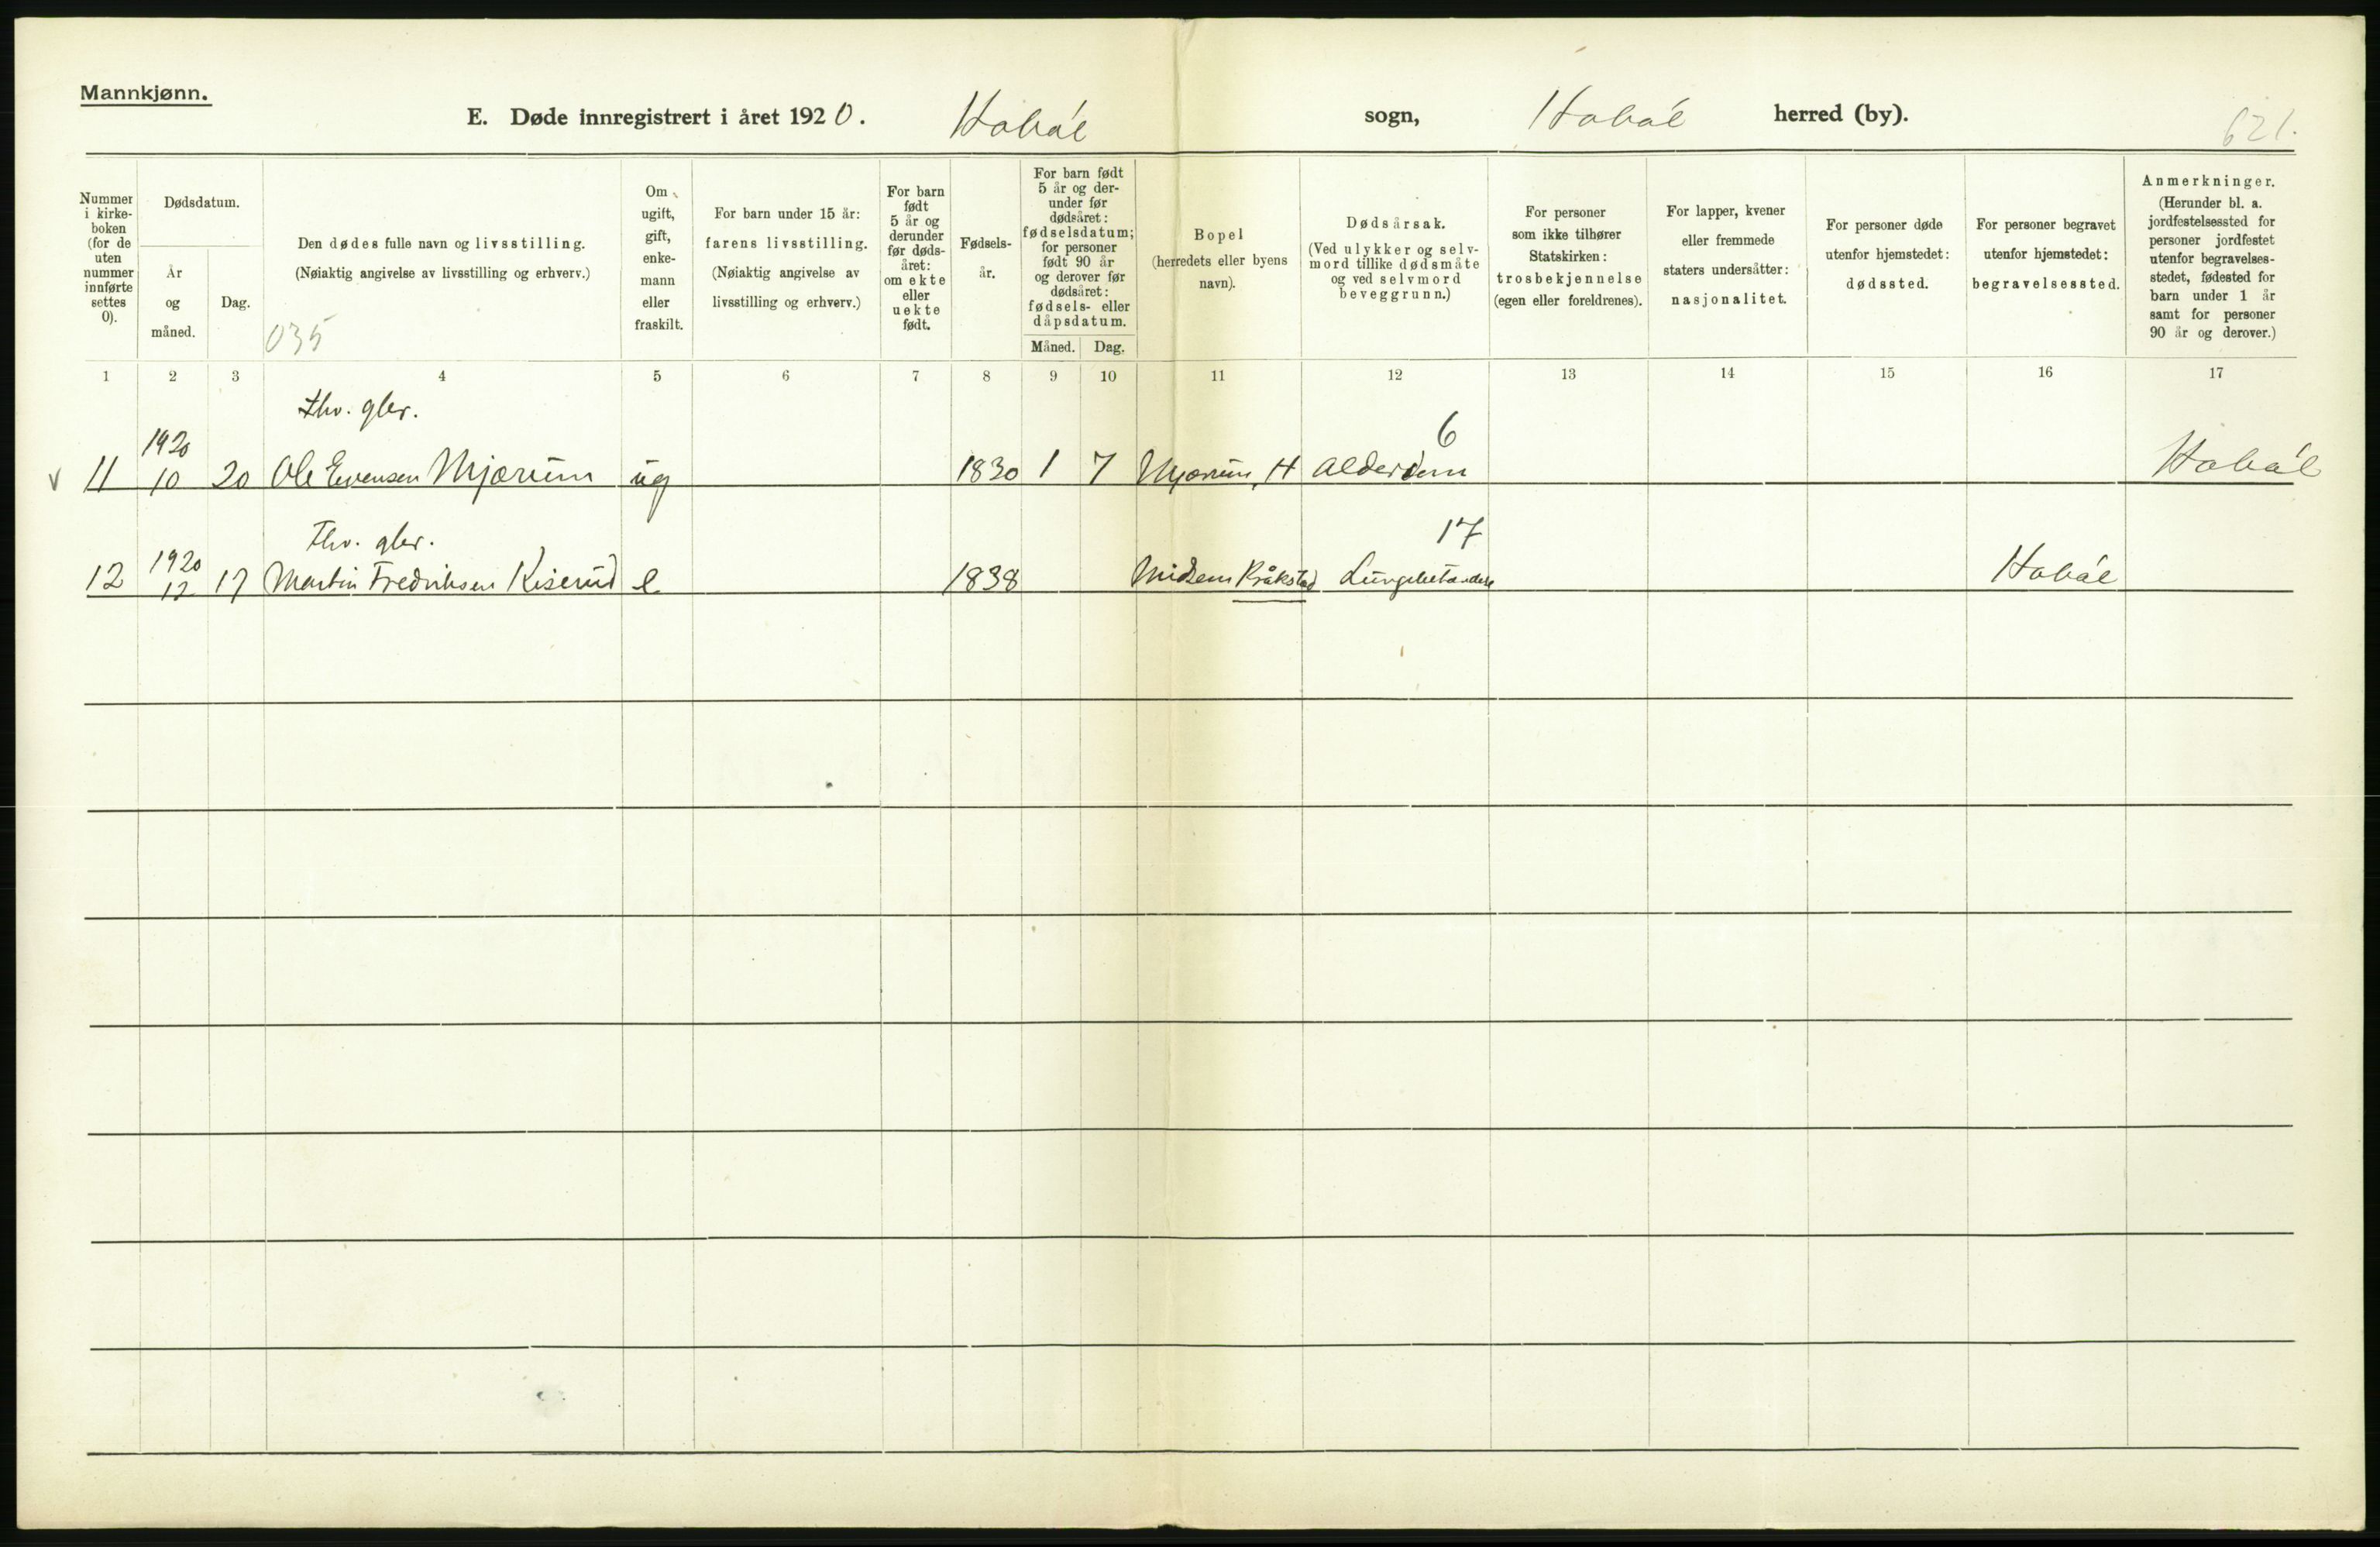 Mannkjønn.
E. Døde innregistrert i året 1920. Hobøl sogn, Hobøl herred (by).
621.
Nummer i kirke-boken (for de uten nummer innførte settes 0).
Dødsdatum.
År og måned.
Dag.
Den dødes fulle navn og livsstilling.
(Nøiaktig angivelse av livsstilling og erhverv.)
035
Om ugift, gift, enke-mann eller fraskilt.
For barn under 15 år:
farens livsstilling.
(Nøiaktig angivelse av livsstilling og erhverv.)
For barn født 5 år og derunder før døds-året: om ekte eller uekte født.
Fødsels-år.
For barn født 5 år og der-under før dødsåret: fødselsdatum; for personer født 90 år og derover før dødsåret: fødsels- eller dåpsdatum.
Måned. Dag.
Bopel
(herredets eller byens navn).
Dødsårsak.
(Ved ulykker og selv-mord tillike dødsmåte og ved selvmord beveggrunn.)
For personer som ikke tilhører Statskirken: trosbekjennelse (egen eller foreldrenes).
For lapper, kvener eller fremmede staters undersåtter: nasjonalitet.
For personer døde utenfor hjemstedet: dødssted.
For personer begravet utenfor hjemstedet: begravelsessted.
Anmerkninger.
(Herunder bl. a. jordfestelsessted for personer jordfestet utenfor begravelses-stedet, fødested for barn under 1 år samt for personer 90 år og derover.)
1 2 3 4 5 6 7 8 9 10 11 12 13 14 15 16 17
fhv. gbr.
1920 6
v 11 10 20 Ole Evensen Mjærum ug 1830 1 7 Mjærum, H Alderdom Hobøl
Fhv. gbr.
1920 17
12 12 17 Martin Fredriksen Kiserud e 1838 Midsem Kråkstad Lungebetændelse Hobøl